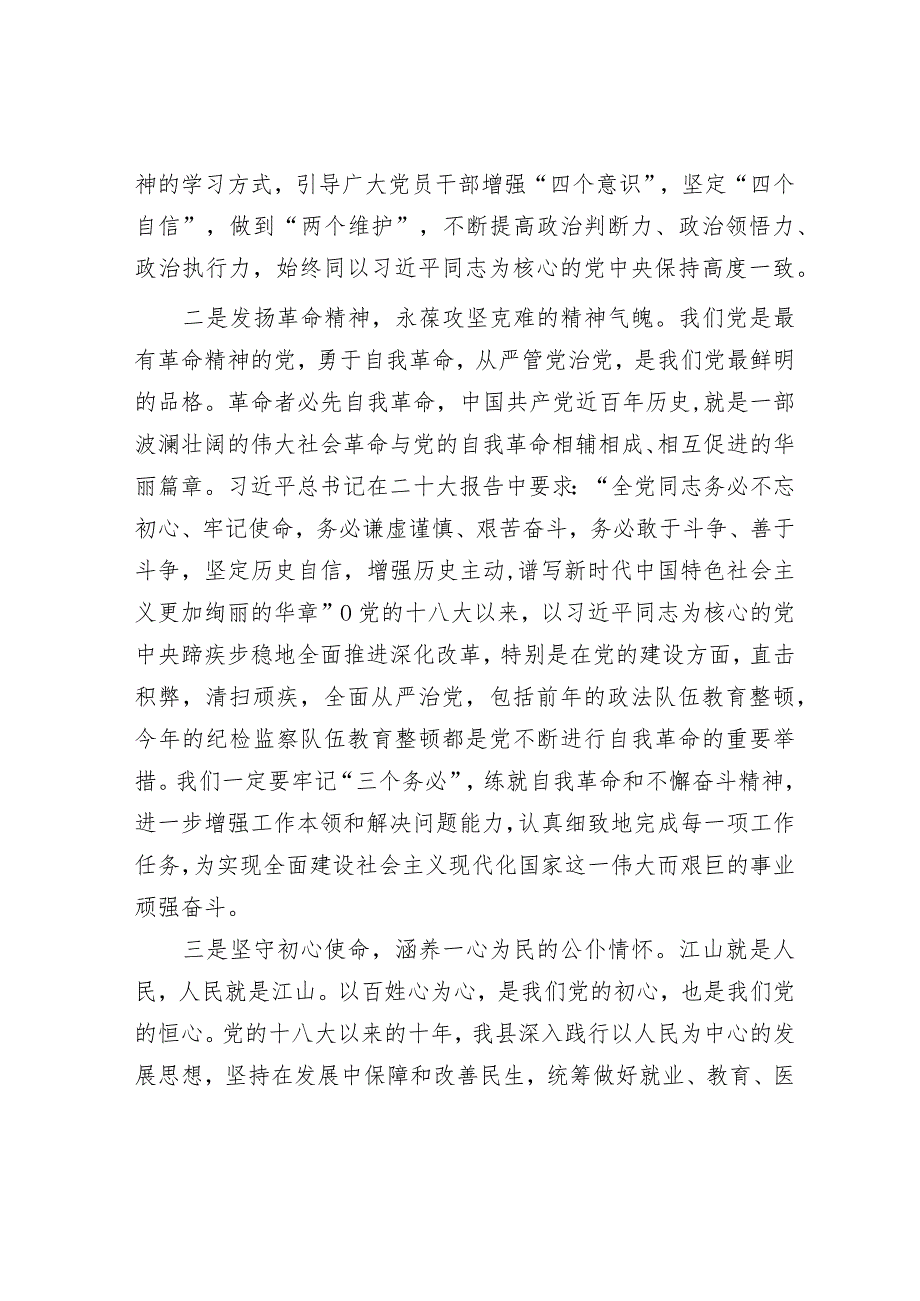 神的学习方式，引导广大党员干部增强“四个意识”，坚定“四个
自信”，做到“两个维护”，不断提高政治判断力、政治领悟力、
政治执行力，始终同以习近平同志为核心的党中央保持高度一致。
二是发扬革命精神，永葆攻坚克难的精神气魄。我们党是最
有革命精神的党，勇于自我革命，从严管党治党，是我们党最鲜明
的品格。革命者必先自我革命，中国共产党近百年历史,就是一部
波澜壮阔的伟大社会革命与党的自我革命相辅相成、相互促进的华
丽篇章。习近平总书记在二十大报告中要求：“全党同志务必不忘
初心、牢记使命，务必谦虚谨慎、艰苦奋斗，务必敢于斗争、善于
斗争，坚定历史自信，增强历史主动,谱写新时代中国特色社会主
义更加绚丽的华章”O党的十八大以来，以习近平同志为核心的党
中央蹄疾步稳地全面推进深化改革，特别是在党的建设方面，直击
积弊，清扫顽疾，全面从严治党，包括前年的政法队伍教育整顿，
今年的纪检监察队伍教育整顿都是党不断进行自我革命的重要举
措。我们一定要牢记“三个务必”，练就自我革命和不懈奋斗精神，
进一步增强工作本领和解决问题能力，认真细致地完成每一项工作
任务，为实现全面建设社会主义现代化国家这一伟大而艰巨的事业
顽强奋斗。
三是坚守初心使命，涵养一心为民的公仆情怀。江山就是人
民，人民就是江山。以百姓心为心，是我们党的初心，也是我们党
的恒心。党的十八大以来的十年，我县深入践行以人民为中心的发
展思想，坚持在发展中保障和改善民生，统筹做好就业、教育、医